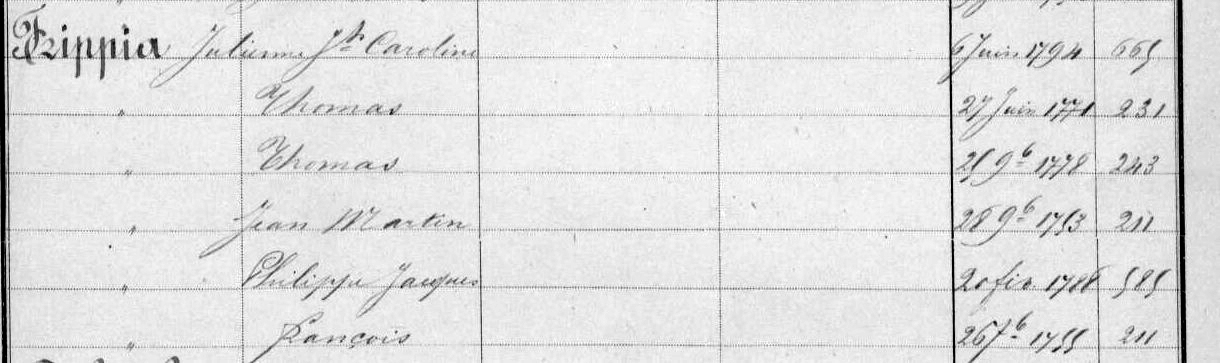 Frippia Julienne Jh Caroline 6 Juin 1794 665
" Thomas 27 Juin 1771 231
" Thomas 25 9b 1778 243
" Jean Martin 28 9b 1753 211
" Philippe Jacques 20 fir 1786 585
" François 26 7b 1755 211